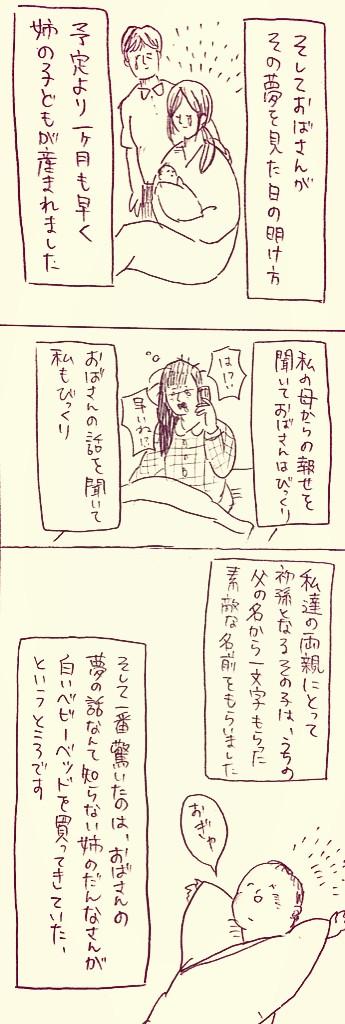 そしておばさんが
その夢を見た日の明け方
予定より一ヶ月も早く
姉の子どもが産まれました
私の母からの報せを
聞いておばさんはびっくり
は!?
早いね!?
おばさんの話を聞いて
私もびっくり
私達の両親にとって
初孫となるその子は、うちの
父の名から一文字もらった
素敵な名前をもらいました
おぎゃ
そして一番驚いたのは、おばさんの
夢の話なんて知らない姉のだんなさんが
白いベビーベッドを買ってきていた、
というところです